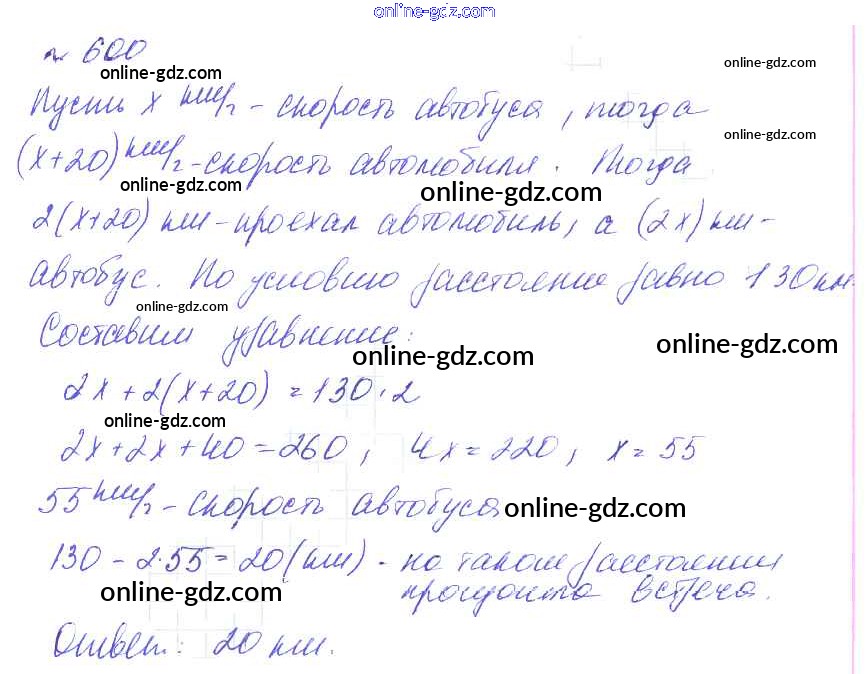 online-gdz.com
№ 600
online-gdz.com online-gdz.com
Пусть x км/г - скорость автобуса, тогда
online-gdz.com
(x+20) км/г - скорость автомобиля. Тогда
online-gdz.com online-gdz.com
2(x+20) км - проехал автомобиль, а (2x) км -
автобус. По условию расстояние равно 130 км.
online-gdz.com
Составим уравнение:
online-gdz.com online-gdz.com
2x + 2(x+20) = 130·2
online-gdz.com
2x+2x+40=260, 4x=220, x=55
55 км/г - скорость автобуса
online-gdz.com
130 - 2·55 = 20 (км) - на таком расстоянии
online-gdz.com
произойдет встреча.
Ответ: 20 км.
online-gdz.com online-gdz.com